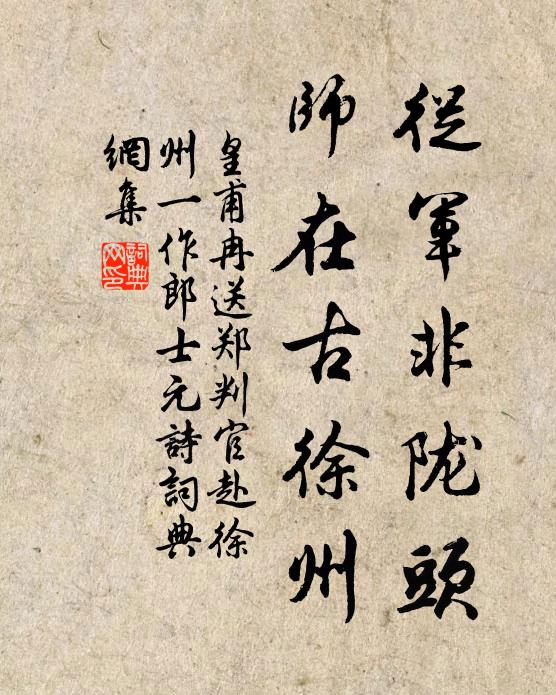 從軍非陇頭
師在古徐州
皇甫冉送郑判官赴徐
州一作郎士元詩詞典
網集
詞典
网印